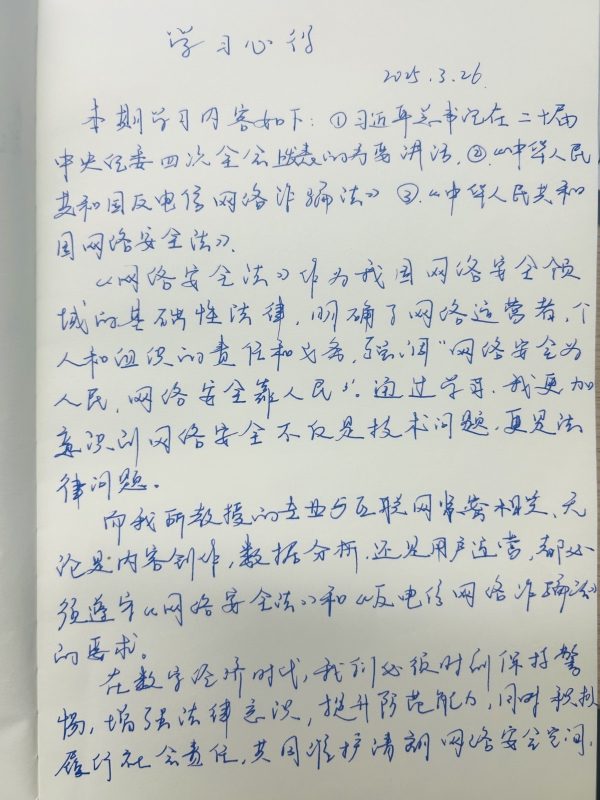 学习心得
2025.3.26.
本期学习内容如下:①习近平总书记在二十届
中央纪委四次全会上发表的重要讲话,②.《中华人民
共和国反电信网络诈骗法》③.《中华人民共和
国网络安全法》.
《网络安全法》作为我国网络安全领
域的基础性法律,明确了网络运营者,个
人和组织的责任和义务,强调“网络安全为
人民,网络安全靠人民”。通过学习,我更加
意识到网络安全不仅是技术问题,更是法
律问题。
而我所教授的专业与互联网紧密相关,无
论是内容创作,数据分析,还是用户运营,都必
须遵守《网络安全法》和《反电信网络诈骗法》
的要求。
在数字经济时代,我们必须时刻保持警
惕,增强法律意识,提升防范能力,同时积极
履行社会责任,共同维护清朗网络安全空间,